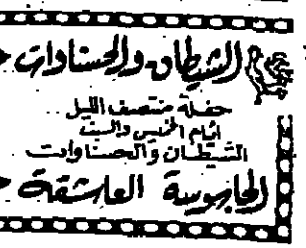 الشيطان والحسناوات
حفلة منتصف الليل
ايام الخميس والسبت
الشيطان والحسناوات
الجاسوسة العاشقة